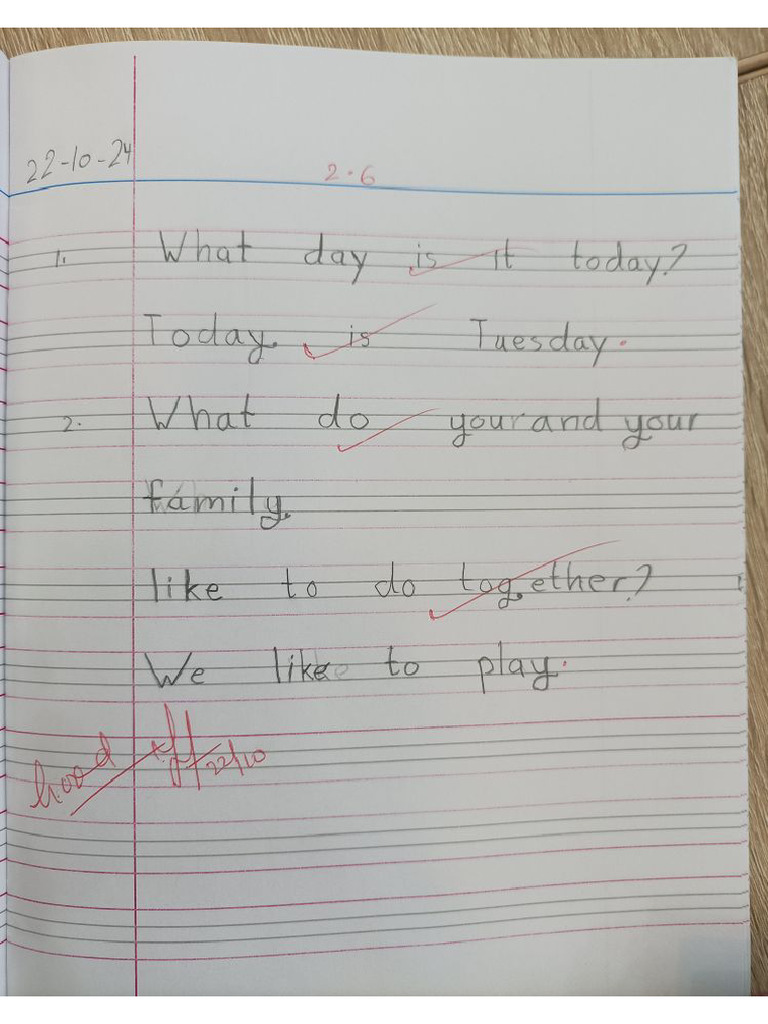 22-10-24
2.6
1. What day is it today?
Today is Tuesday.
2. What do your and your
family.
like to do together?
We like to play.
Good
22/10